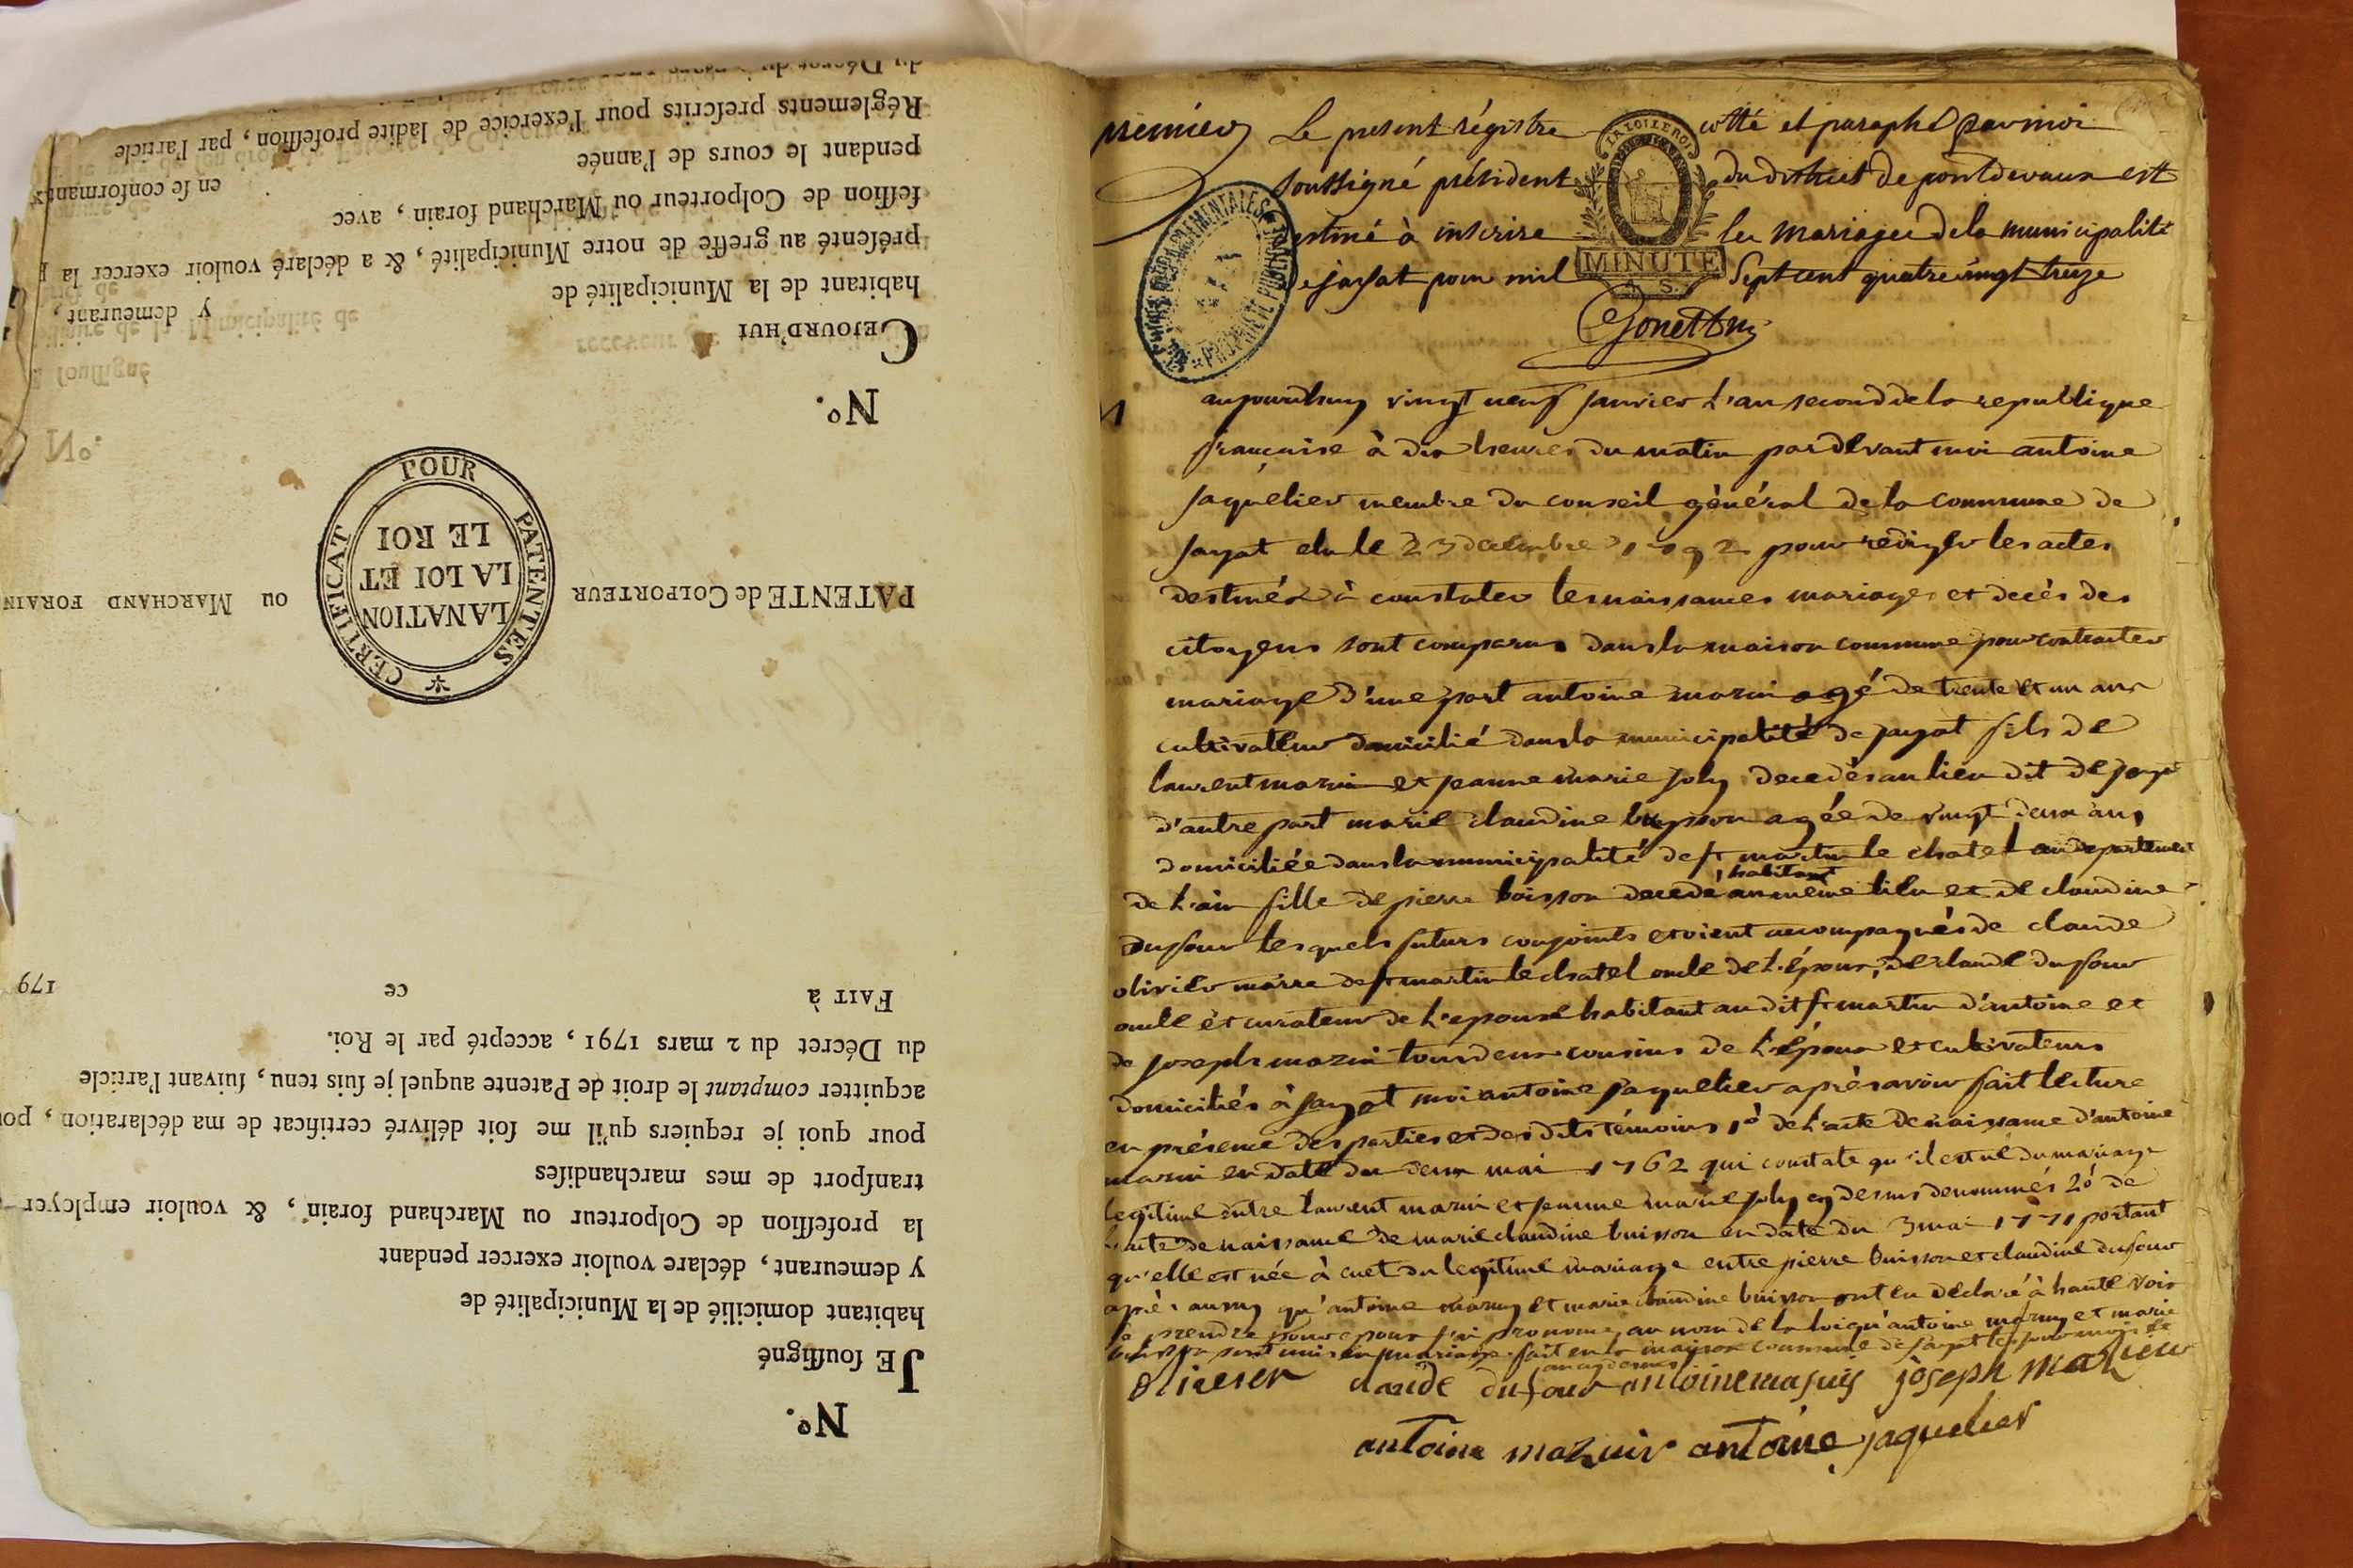 du Décret du
Réglements prescrits pour l'exercice de ladite profession, par l'article
pendant le cours de l'année en se conformant
fession de Colporteur ou Marchand forain, avec
présenté au greffe de notre Municipalité, & a déclaré vouloir exercer la
habitant de la Municipalité de y demeurant,
CEJOURD'HUI
N°.
PATENTE de COLPORTEUR OU MARCHAND FORAIN
CERTIFICAT POUR PATENTES
LA NATION
LA LOI ET
LE ROI
FAIT à ce 179
du Décret du 2 mars 1791, accepté par le Roi.
acquitter comptant le droit de Patente auquel je suis tenu, suivant l'article
pour quoi je requiers qu'il me soit délivré certificat de ma déclaration, pou
transport de mes marchandises
la profession de Colporteur ou Marchand forain, & vouloir employer
y demeurant, déclare vouloir exercer pendant
habitant domicilié de la Municipalité de
JE soussigné
N°.
premier Le present régistre cotté et paraphé par moi
soussigné président du district de pontdevaux est
estiné à inscrire les mariages de la municipalité
de jayat pour mil sept cent quatre vingt treize
LA LOI LE ROI
MINUTE
PROPRIETE PUBLIQUE
aujourdhuy vingt neuf janvier l'an second de la republique
française à dix heures du matin pardevant moi antoine
jaquelier membre du conseil général de la commune de
jayat elu le 23 decembre 1792 pour rediger les actes
destinés à constater les naissances mariages et decès des
citoyens sont comparus dans la maison commune pour contracter
mariage d'une part antoine mazui agé de trente et un ans
cultivateur domicilié dans la municipalité de jayat fils de
laurent mazui et jeanne marie joly decedés au lieu dit de jayat
d'autre part marie claudine buisson agée de vingt deux ans
domiciliée dans la municipalité de st martin le chatel au departement
de l'ain fille de pierre boisson decedé habitant au même lieu et de claudine
dufour lesquels futurs conjoints etoient accompagnés de claude
olivier de st martin le chatel oncle de l'époux, de claude dufour
oncle et curateur de l'epouse habitant au dit st martin d'antoine et
de joseph mazui tous deux cousins de l'époux et cultivateurs
domiciliés à jayat moi antoine jaquelier après avoir fait lecture
en présence des parties et des dits témoins 1° de l'acte de naissance d'antoine
mazui en date du deux mai 1762 qui constate qu'il est né du mariage
legitime entre laurent mazui et jeanne marie joly cy dessus denommés 2° de
l'acte de naissance de marie claudine buisson en date du 3 mai 1771 portant
qu'elle est née à cuet du legitime mariage entre pierre buisson et claudine dufour
après aussy qu'antoine mazuy et marie claudine buisson ont eu déclaré à haute voix
se prendre pour epoux j'ai prononcé au nom de la loi qu'antoine mazuy et marie
buisson sont unis en mariage fait en la maison commune de jayat les jour mois et
an cy dessus
olivier claude dufour antoine joseph mazuir
antoine mazuir antoine jaquelier